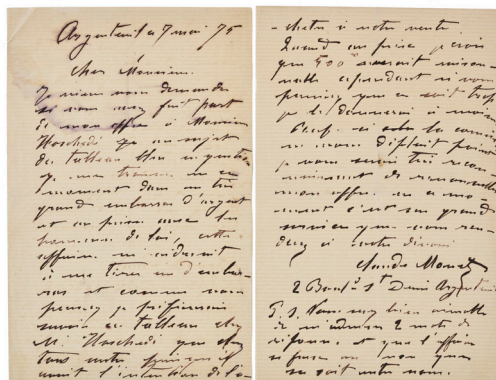 Argenteuil ce 7 mai 75
Cher Monsieur.
Je viens vous demander
si vous avez fait part
de mon offre à Monsieur
Hoschedé au sujet
du tableau bleu en question
je me trouve en ce
moment dans un très
grand embarras d'argent
et au prise avec les
hommes de loi, cette
affaire m'aiderait
à me tirer d'embar-
ras et comme vous
pensez je préférerais
savoir ce tableau chez
M. Hoschedé que chez
tout autre puisqu'il
avait l'intention de l'a-
-cheter à votre vente.
Quand au prix je crois
que 500 serait raison-
nable cependant si vous
pensiez que ce soit trop
je le donnerai à moins
Bref, si cela la comm
ne vous déplait point
je vous serai très recon-
naissant de renouveler
mon offre. en ce mo-
ment c'est un grand
service que vous ren-
dez à votre dévoué
Claude Monet
2 Boulᵈ Sᵗ Denis Argenteuil
P. S. Vous seriez bien aimable
de m'adresser 2 mots de
réponse et que l'affaire
se fasse ou non que
ce soit entre nous.